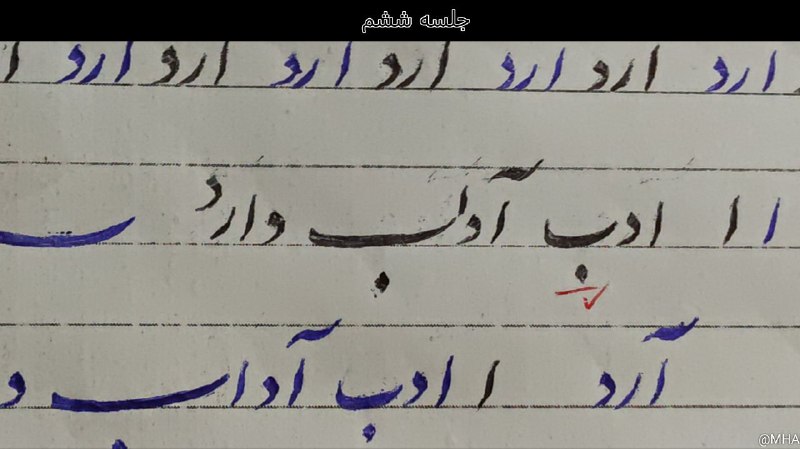 جلسه ششم
ارد ارد ارد ارد ارد ارد ارد
ا ا ادب آداب وارد
آرد ا ادب آداب و
@MHA